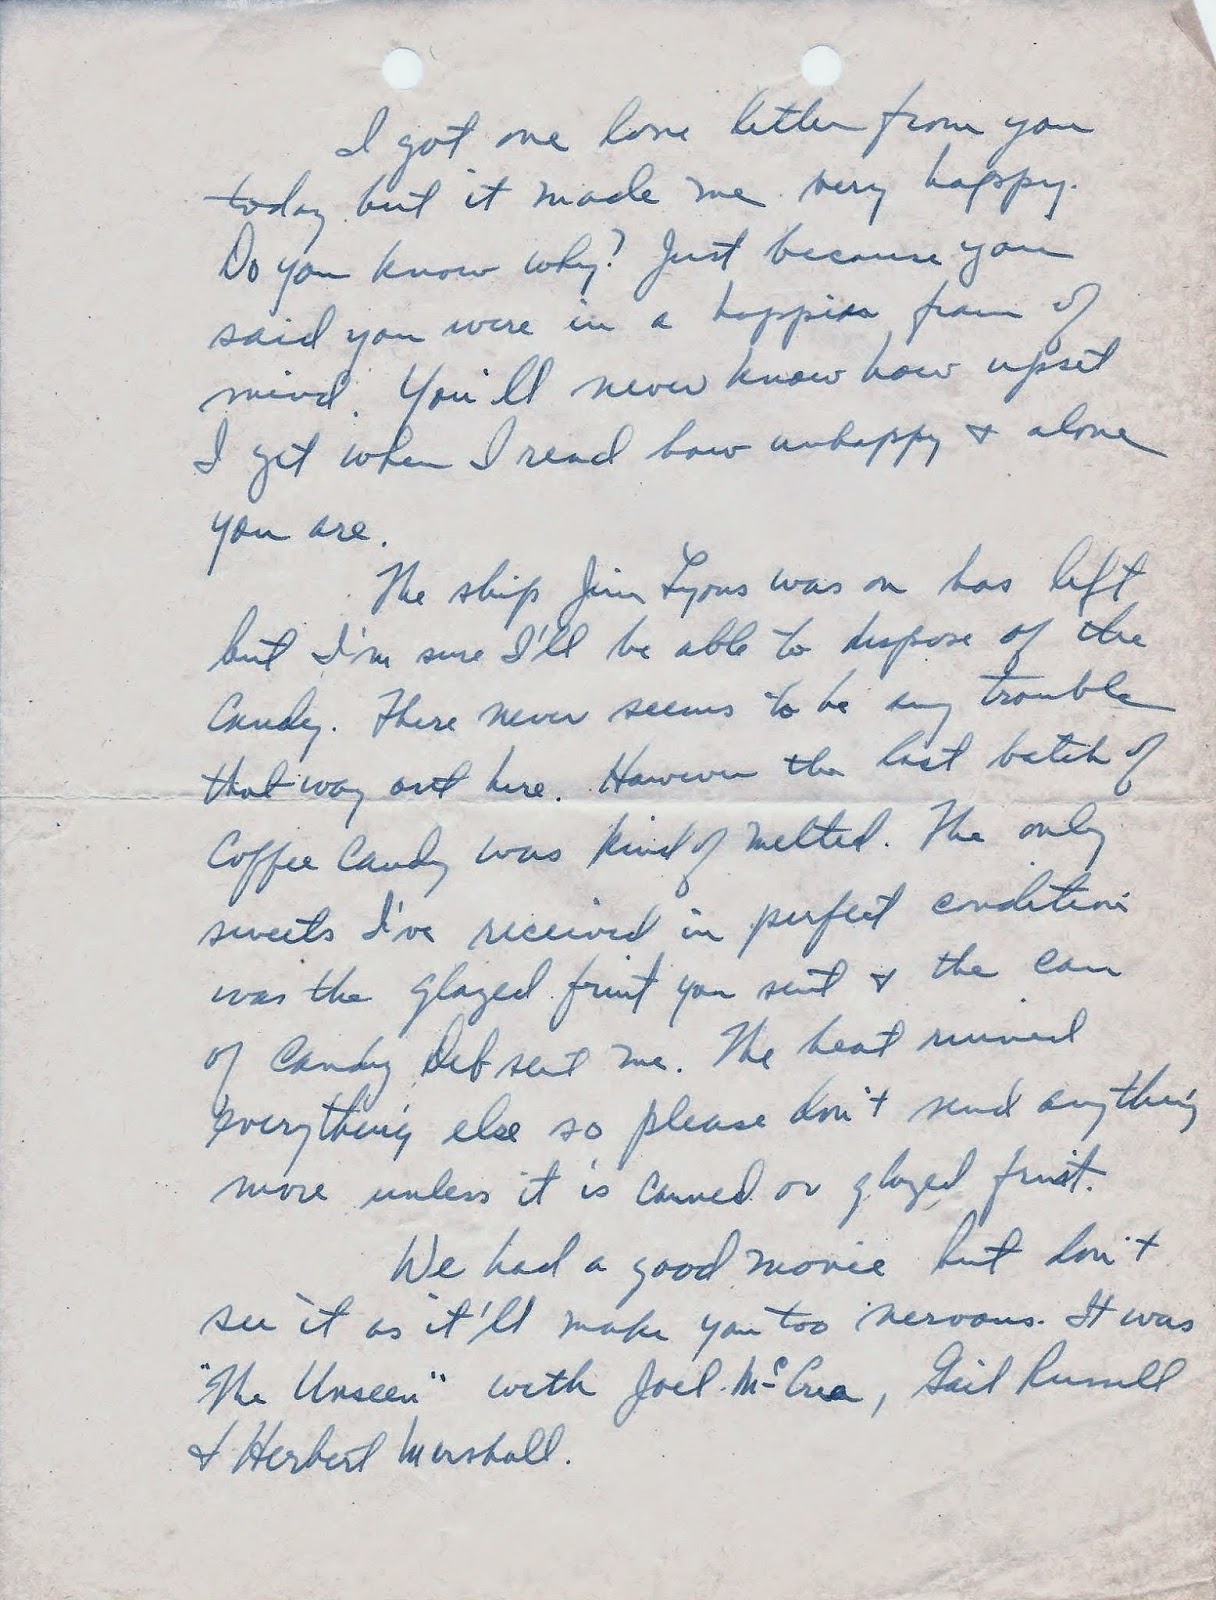 I got one lone letter from you
today but it made me very happy.
Do you know why? Just because you
said you were in a happier fram of
mind. You'll never know how upset
I get when I read how unhappy & alone
you are.
The ship Jim Lyons was on has left
but I'm sure I'll be able to dispose of the
candy. There never seems to be any trouble
that way out here. However the last batch of
coffee candy was kind of melted. The only
sweets I've received in perfect condition
was the glazed fruit you sent & the can
of candy Deb sent me. The heat ruined
everything else so please don't send anything
more unless it is canned or glazed fruit.
We had a good movie but don't
see it as it'll make you too nervous. It was
"The Unseen" with Joel McCrea, Gail Russell
& Herbert Marshall.